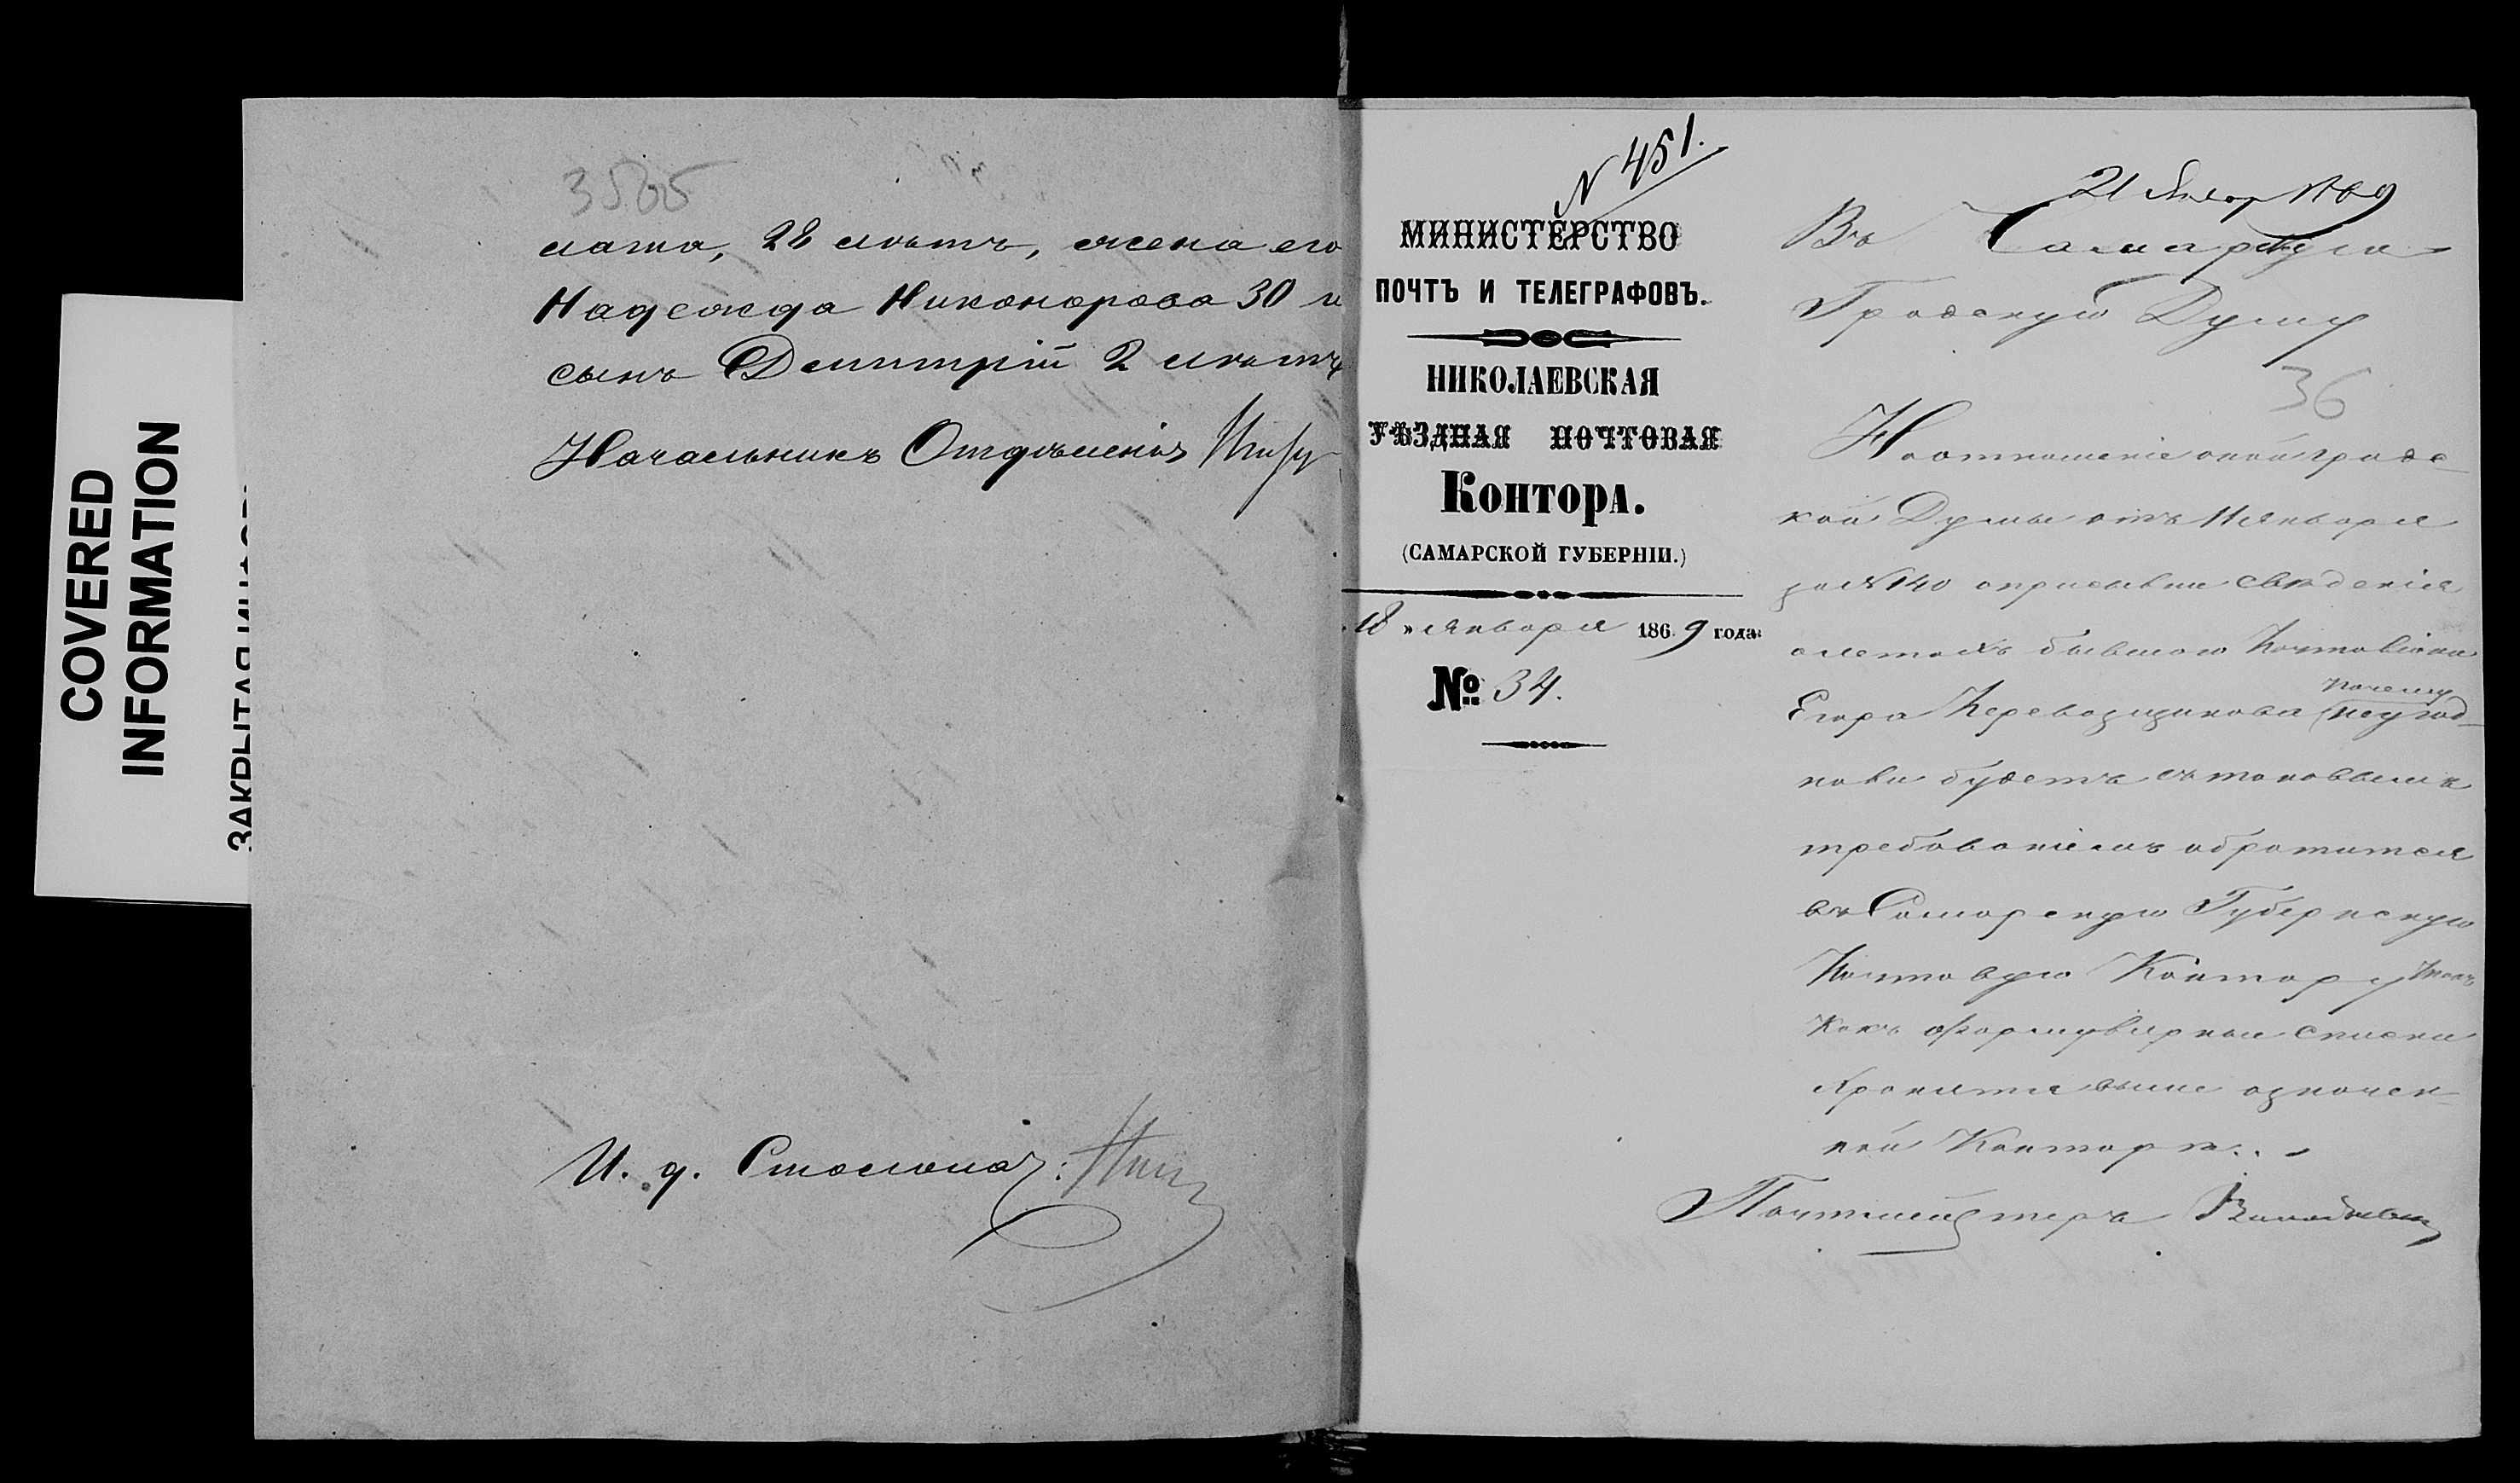 COVERED
INFORMATION
35об
лата, 28 лѣтъ, жена его
Надежда Никонорова 30 л
сынъ Дмитрій 2 лѣтъ
Начальникъ Отдѣленія
И. д. Столонач:
N 451.
МИНИСТЕРСТВО
ПОЧТЪ И ТЕЛЕГРАФОВЪ.
НИКОЛАЕВСКАЯ
УѢЗДНАЯ ПОЧТОВАЯ
КОНТОРА.
(САМАРСКОЙ ГУБЕРНІИ.)
18 » Января 1869 года
№ 34.
21 Январ 1869
Въ Самарскую
Градскую Думу
36
На отношеніе оной градс
кой Думы отъ 11 Января
за N 140 о присылке сведенія
о летахъ бывшаго Почталіона
Егора Перевозщикова почему неугод-
но ли будетъ съ таковымъ
требованіемъ обратится
въ Самарскую Губернскую
Почтовую Контору такъ
какъ формулярные списки
хранятся выше означен-
ной Конторѣ.
Почтмейстеръ